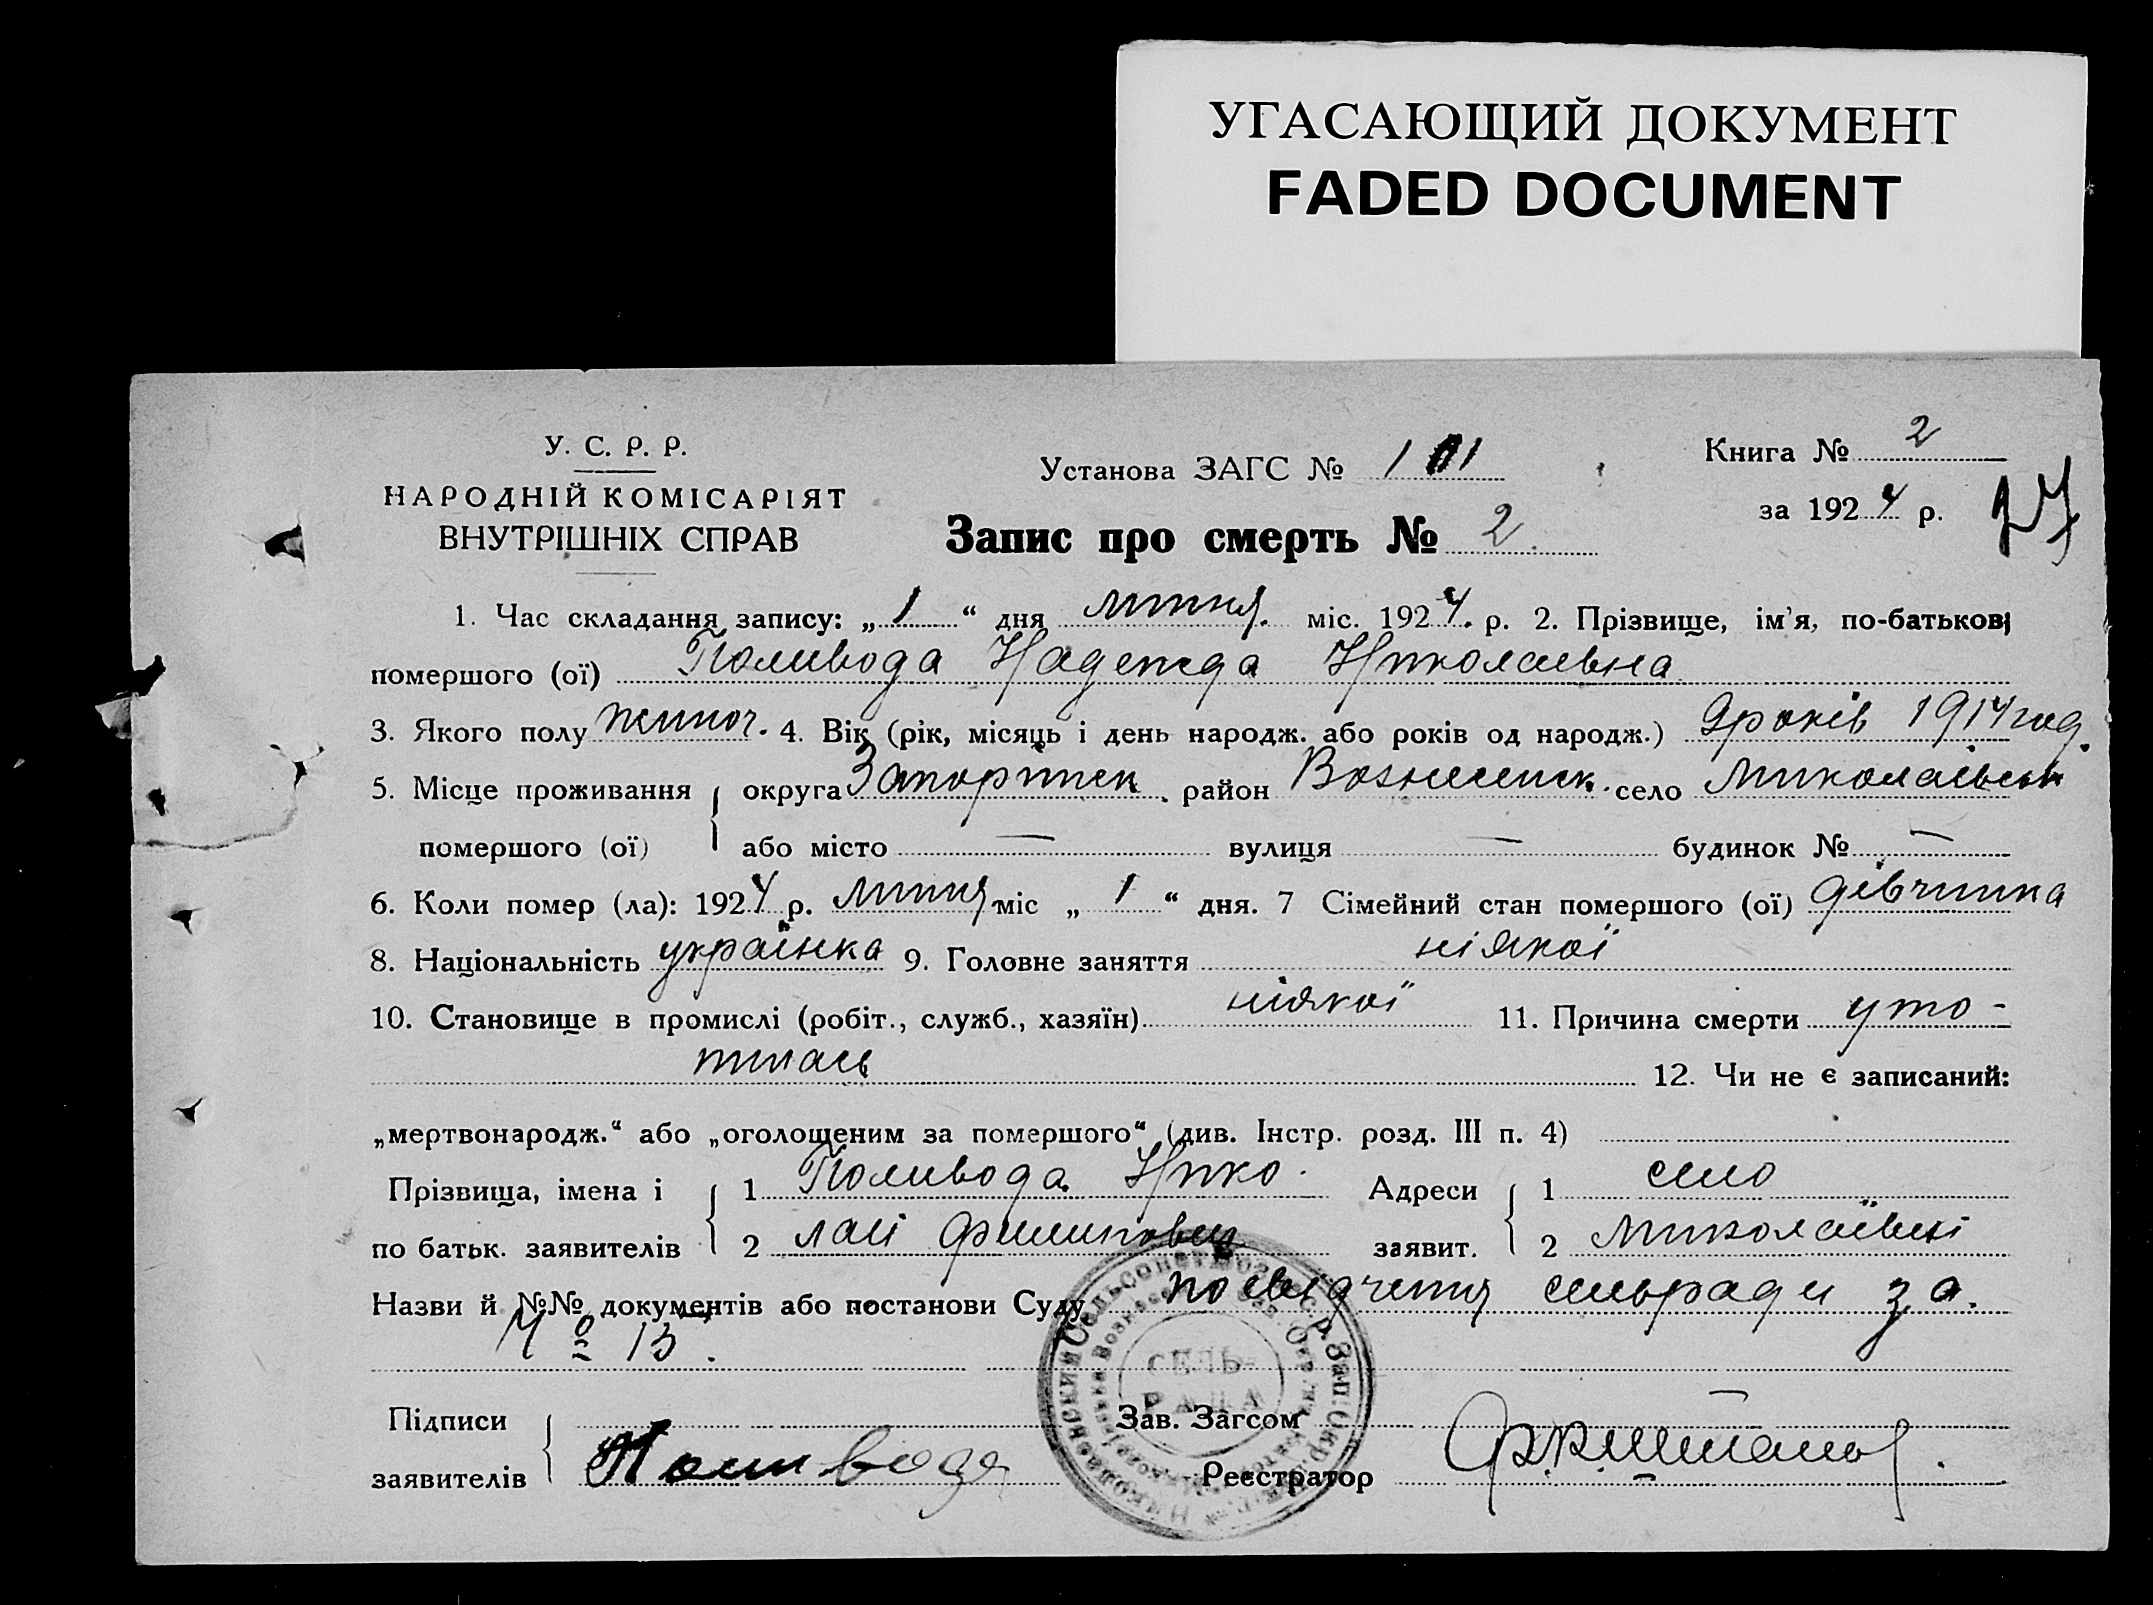 УГАСАЮЩИЙ ДОКУМЕНТ
FADED DOCUMENT
У. С. Р. Р.
НАРОДНІЙ КОМІСАРІЯТ
ВНУТРІШНІХ СПРАВ
Установа ЗАГС № 101
Книга № 2
за 1924 р.
27
Запис про смерть № 2
1. Час складання запису: „1“ дня липня міс. 1924 р. 2. Прізвище, ім'я, по-батькові
помершого (ої) Поливода Надежда Николаевна
3. Якого полу жіноч. 4. Вік (рік, місяць і день народж. або років од народж.) 9 років 1914 год.
5. Місце проживання округа Запоріжск. район Вознесенск. село Миколаївськ
помершого (ої) або місто — вулиця — будинок № —
6. Коли помер (ла): 1924 р. липня міс „1“ дня. 7 Сімейний стан помершого (ої) дівчинка
8. Національність українка 9. Головне заняття ніякої
10. Становище в промислі (робіт., служб., хазяїн) ніякої 11. Причина смерти уто-
пилась 12. Чи не є записаний:
„мертвонародж.“ або „оголошеним за помершого“ (див. Інстр. розд. III п. 4)
Прізвища, імена і 1 Поливода Нико- Адреси 1 село
по батьк. заявителів 2 лай Филиповец заявит. 2 Миколаївці
Назви й №№ документів або постанови Суду посвідчення сельради за
№ 13.
Підписи Зав. Загсом
заявителів Поливода Реєстратор
СЕЛЬ-
РАДА